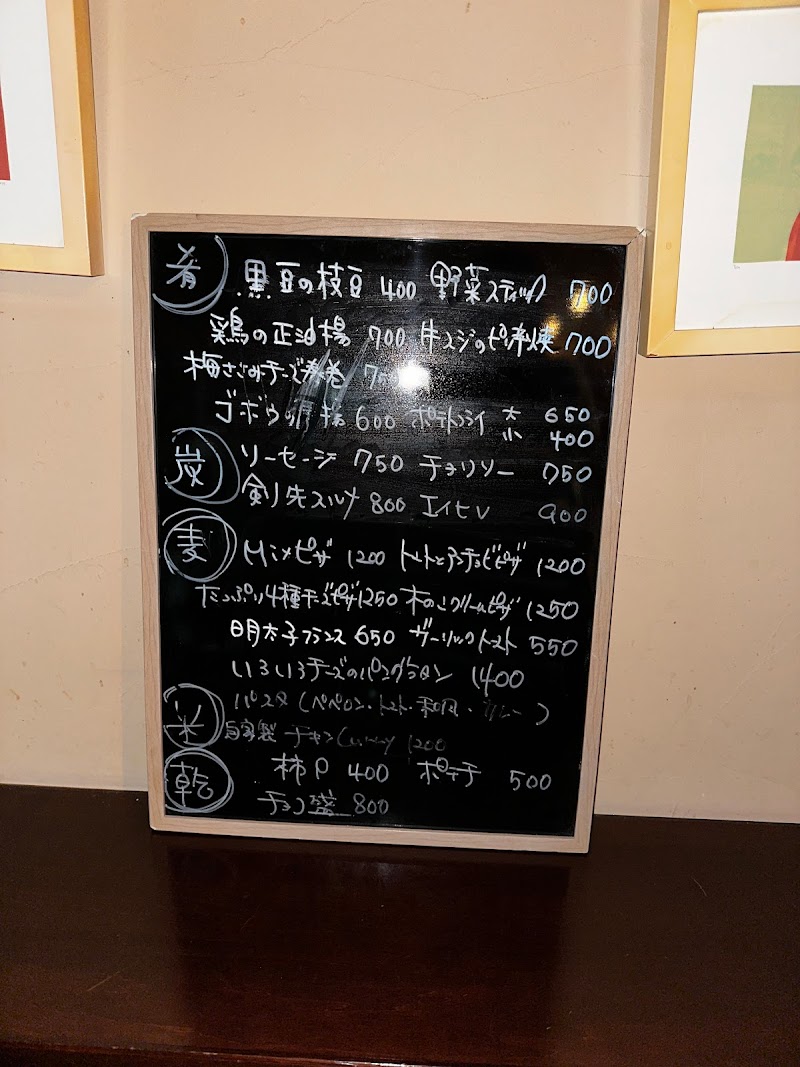 肴 黒豆の枝豆 400 野菜スティック 700
鶏の正油揚 700 牛スジのピリ辛煉 700
梅ささみチーズ春巻
ゴボウの唐揚 600 ポテトフライ 大 650
小 400
炭 ソーセージ 750 チョリソー 750
剣先スルメ 800 エイヒレ 900
麦 Mixピザ 1200 トマトとアンチョビピザ 1200
たっぷり4種チーズピザ1250 木のこクリームピザ 1250
明太子フランス 650 ガーリックトースト 550
いろいろチーズのパングラタン 1400
米 パスタ (ペペロン・トマト・和風・カレー)
自家製 チキンCurry 1200
乾 柿P 400 ポテチ 500
チョコ盛 800